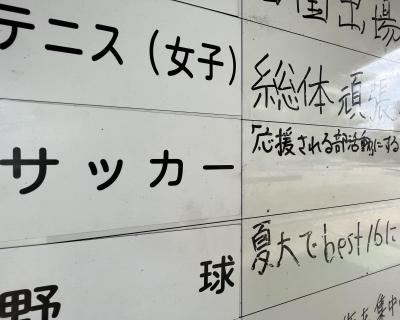 国出場
テニス(女子) 総体頑張
サッカー 「応援される部活動にする
野球 夏大でbest16に
集中